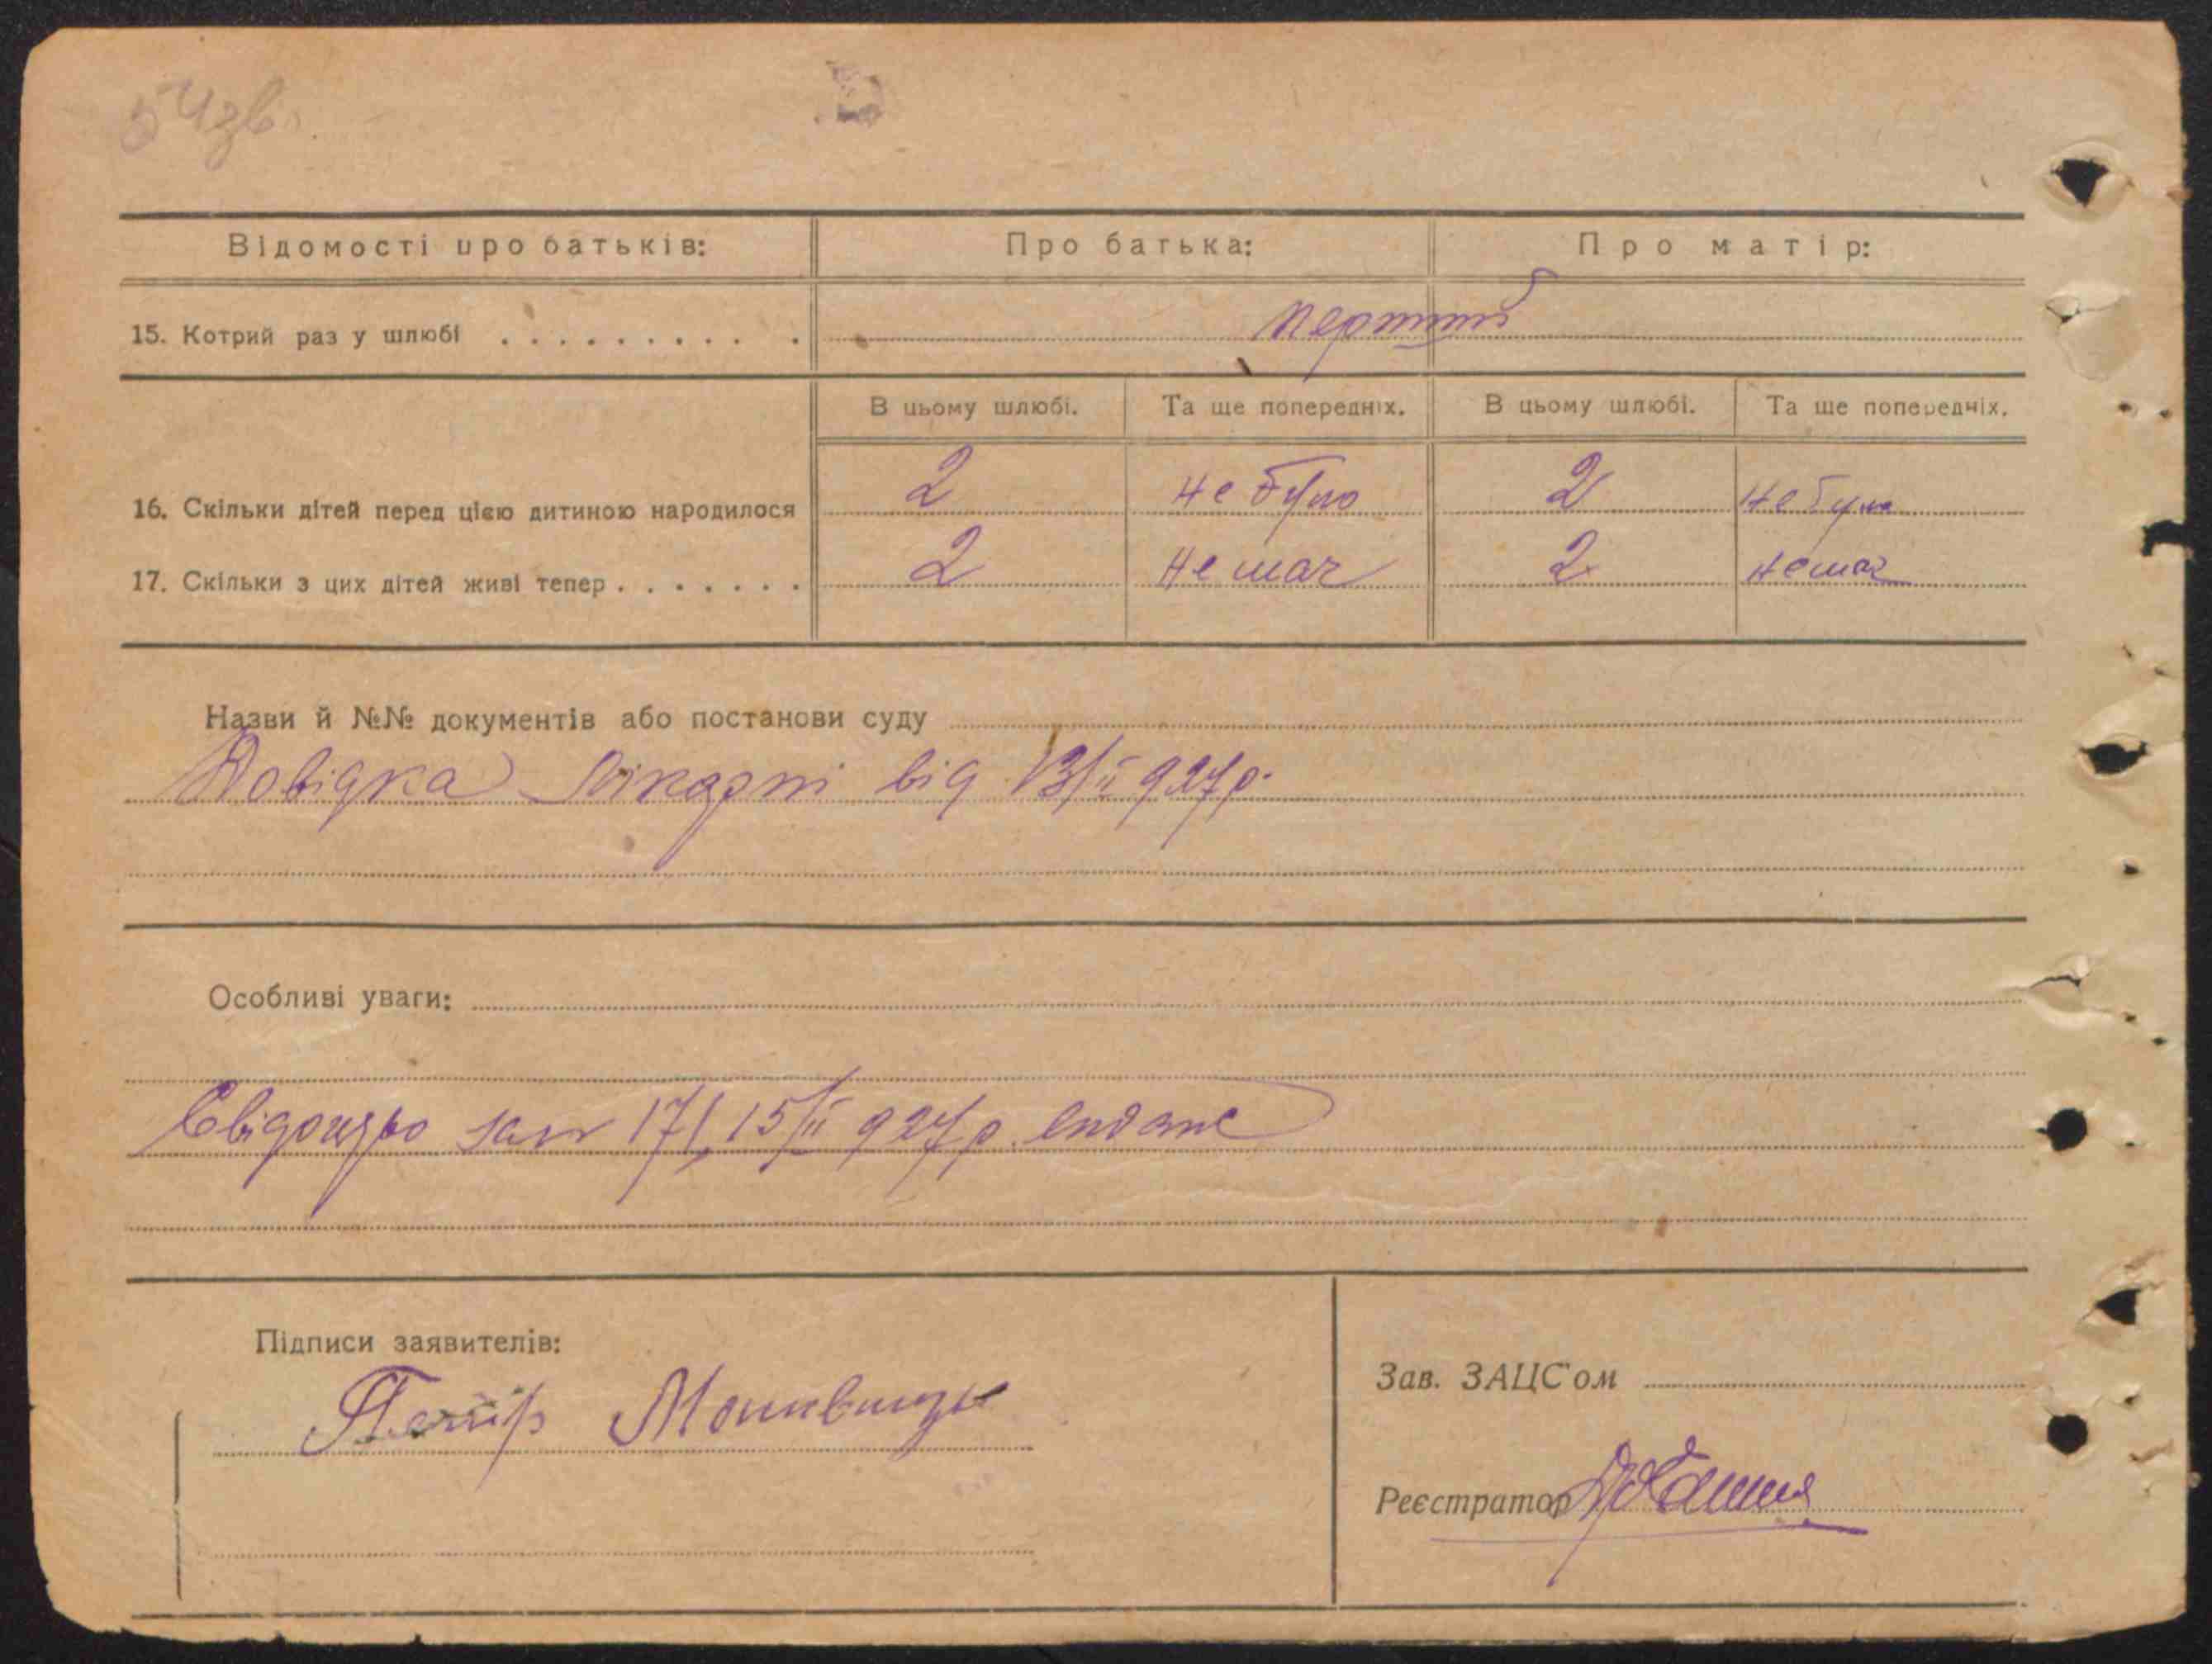 Відомості про батьків: Про батька: Про матір:
15. Котрий раз у шлюбі . . . . . . . . . . перший
В цьому шлюбі. Та ще попередніх. В цьому шлюбі. Та ще попередніх.
16. Скільки дітей перед цією дитиною народилося 2 не було 2 не було
17. Скільки з цих дітей живі тепер . . . . . . . 2 немає 2 немає
Назви й №№ документів або постанови суду
Довідка лікарні від 13/II 927 р.
Особливі уваги:
Свідоцтво за № 171, 15/II 927 р. видане
Підписи заявителів:
Петір
Зав. ЗАЦС'ом
Реєстратор